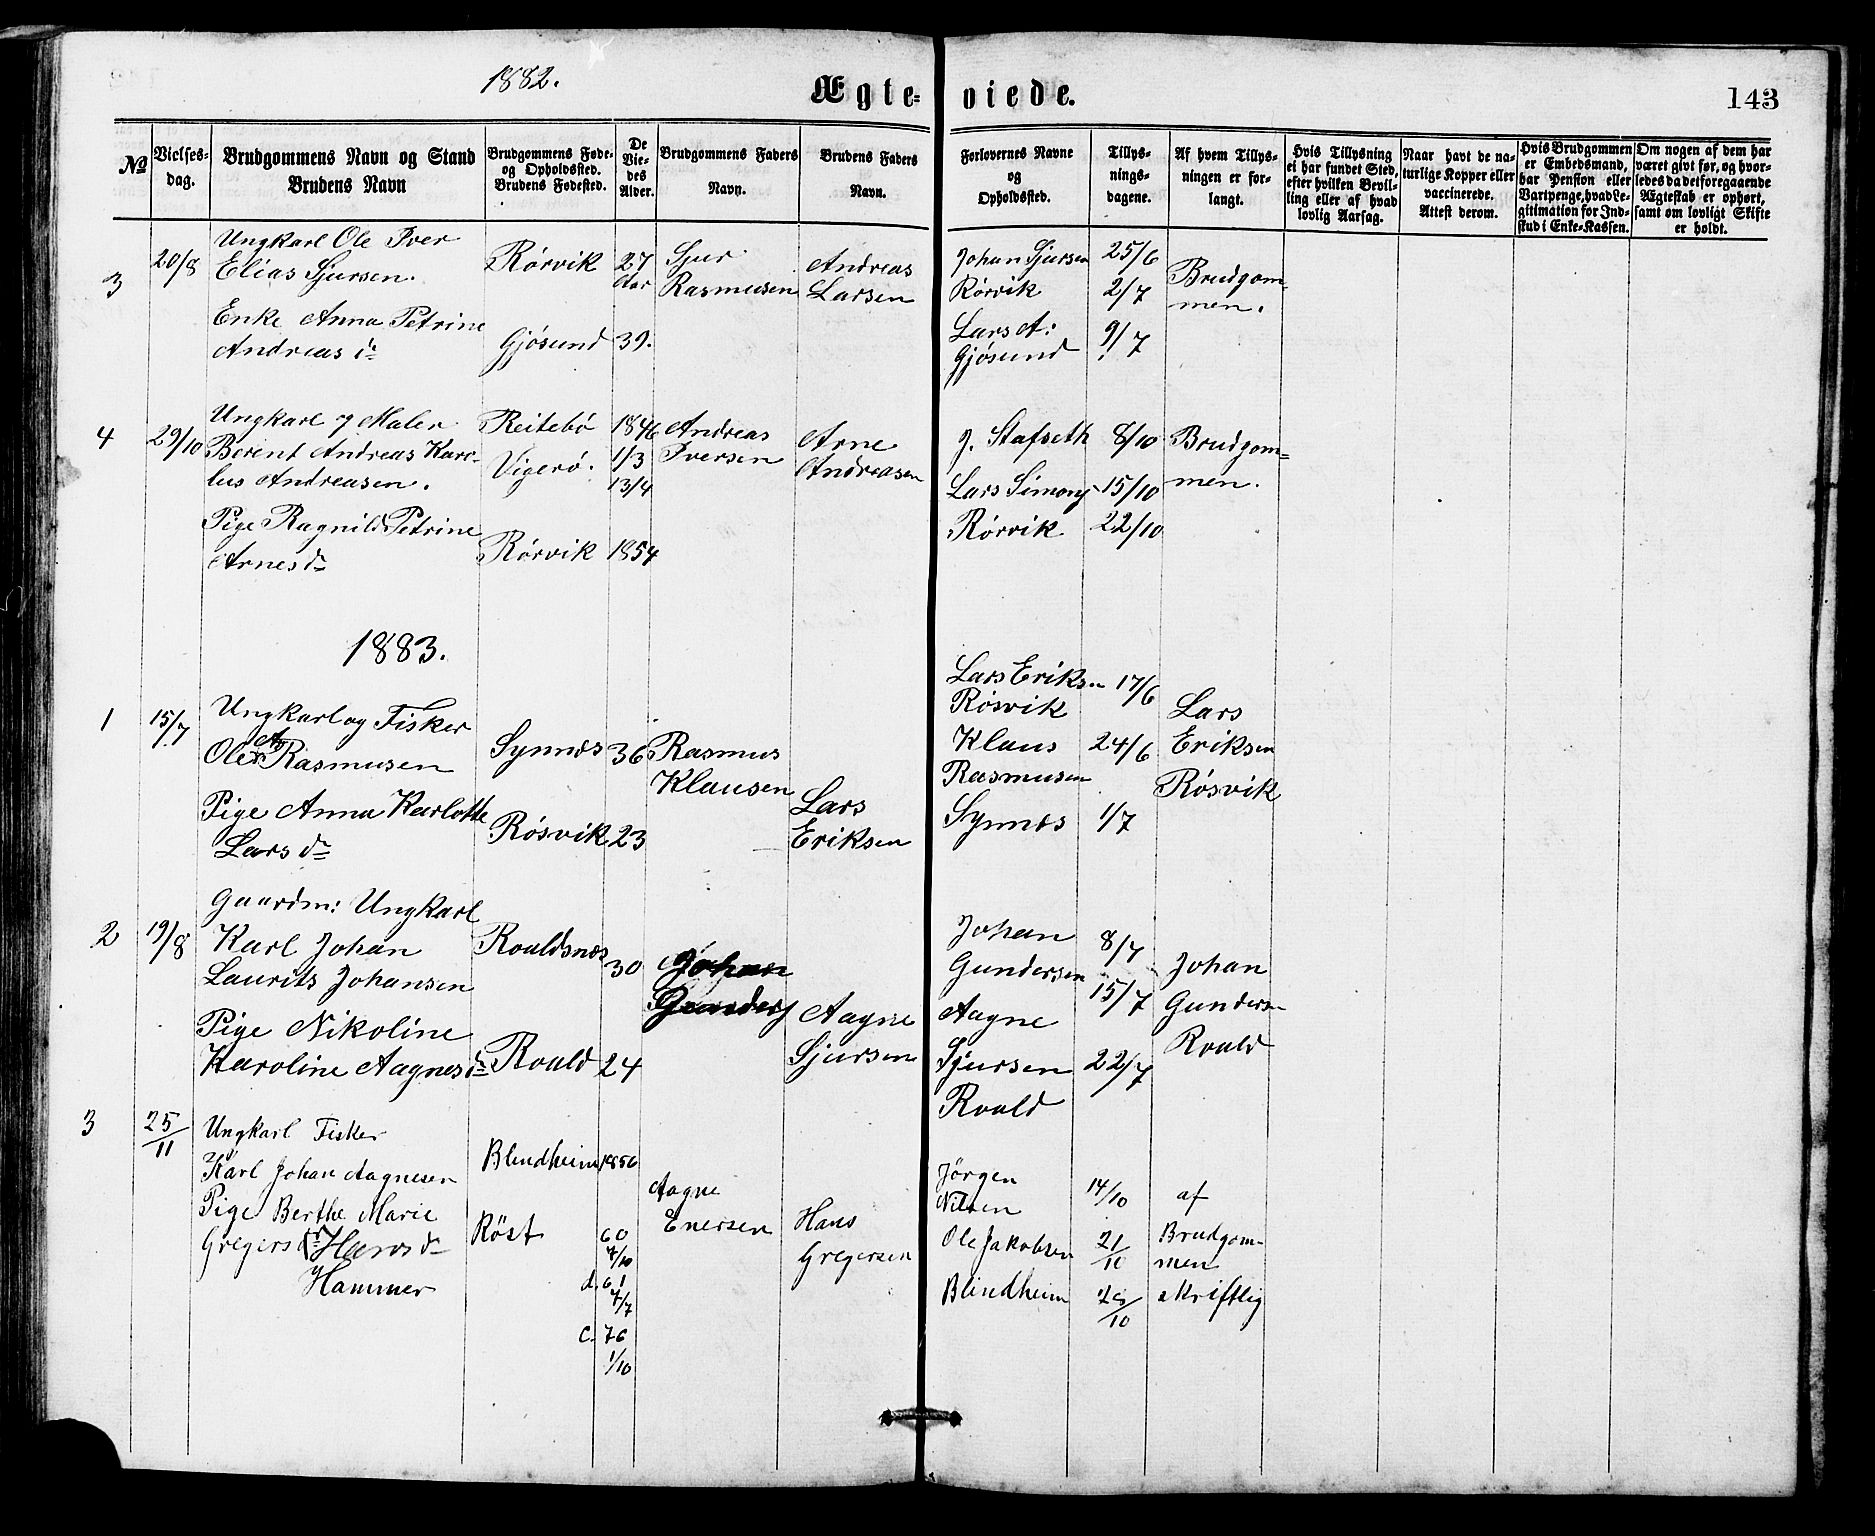 1882.
Ægte- viede.
143
No
Vielses-
dag.
Brudgommens Navn og Stand
Brudens Navn
Brudgommens Føde-
og Opholdssted.
Brudens Fødested.
De
Vie-
des
Alder.
Brudgommens Faders
Navn.
Brudens Faders
Navn.
Forlovernes Navne
og
Opholdssted.
Tillys-
nings-
dagene.
Af hvem Tillys-
ningen er for-
langt.
Hvis Tillysning
ei har fundet Sted,
efter hvilken Bevil-
ling eller af hvad
lovlig Aarsag.
Naar havt de na-
turlige Kopper eller
vaccinerede.
Attest derom.
Hvis Brudgommen
er Embedsmand,
har Pension eller
Vartpenge, hvad Le-
gitimation for Ind-
skud i Enke-Kassen.
Om nogen af dem har
været givt før, og hvor-
ledes da det foregaaende
Ægteskab er ophørt,
samt om lovligt Skifte
er holdt.
3
20/8
Ungkarl Ole Iver
Elias Sjursen.
Enke Anna Petrine
Andreas dr
Rörvik
Gjösund
27
Aar
39.
Sjur
Rasmusen
Andreas
Larsen
Johan Sjursen
Rörvik
Lars A:
Gjösund
25/6
2/7
9/7
Brudgom-
men.
4
29/10
Ungkarl og Maler
Berent Andreas Karo-
lus Andreasen.
Pige Ragnild Petrine
Arnes dr
Reitebö
Vigerö.
Rörvik
1846
1/3
13/4
1854
Andreas
Iversen
Arne
Andreasen
J. Stafseth
Lars Simons
Rörvik
8/10
15/10
22/10
Brudgom-
men.
1883.
1
15/7
Ungkarl og Fisker
Ole Rasmusen
Pige Anna Karlotte
Lars dr
Synnes
Rösvik
36
23
Rasmus
Klausen
Lars
Eriksen
Lars Eriksen
Rösvik
Klaus
Rasmusen
Synnes
17/6
24/6
1/7
Lars
Eriksen
Rösvik
2
19/8
Gaardm: Ungkarl
Karl Johan
Laurits Johansen
Pige Nikoline
Karoline Aagnes dr
Roaldsnes
Roald
30
24
Johan
Gunders
Aagne
Sjursen
Johan
Gundersen
Aagne
Sjursen
Roald
8/7
15/7
22/7
Johan
Gundersen
Roald
3
25/11
Ungkarl Fisker
Karl Johan Aagnesen
Pige Berthe Marie
Gregers dr Hans dr
Hammer
Blindheim
Röst
1856
60
7/10
d. 61
7/7
C. 76
1/10
Aagne
Enersen
Hans
Gregersen
Jörgen
Nilsen
Ole Jakobsen
Blindheim
14/10
21/10
28/10
af
Brudgom-
men
skriftlig